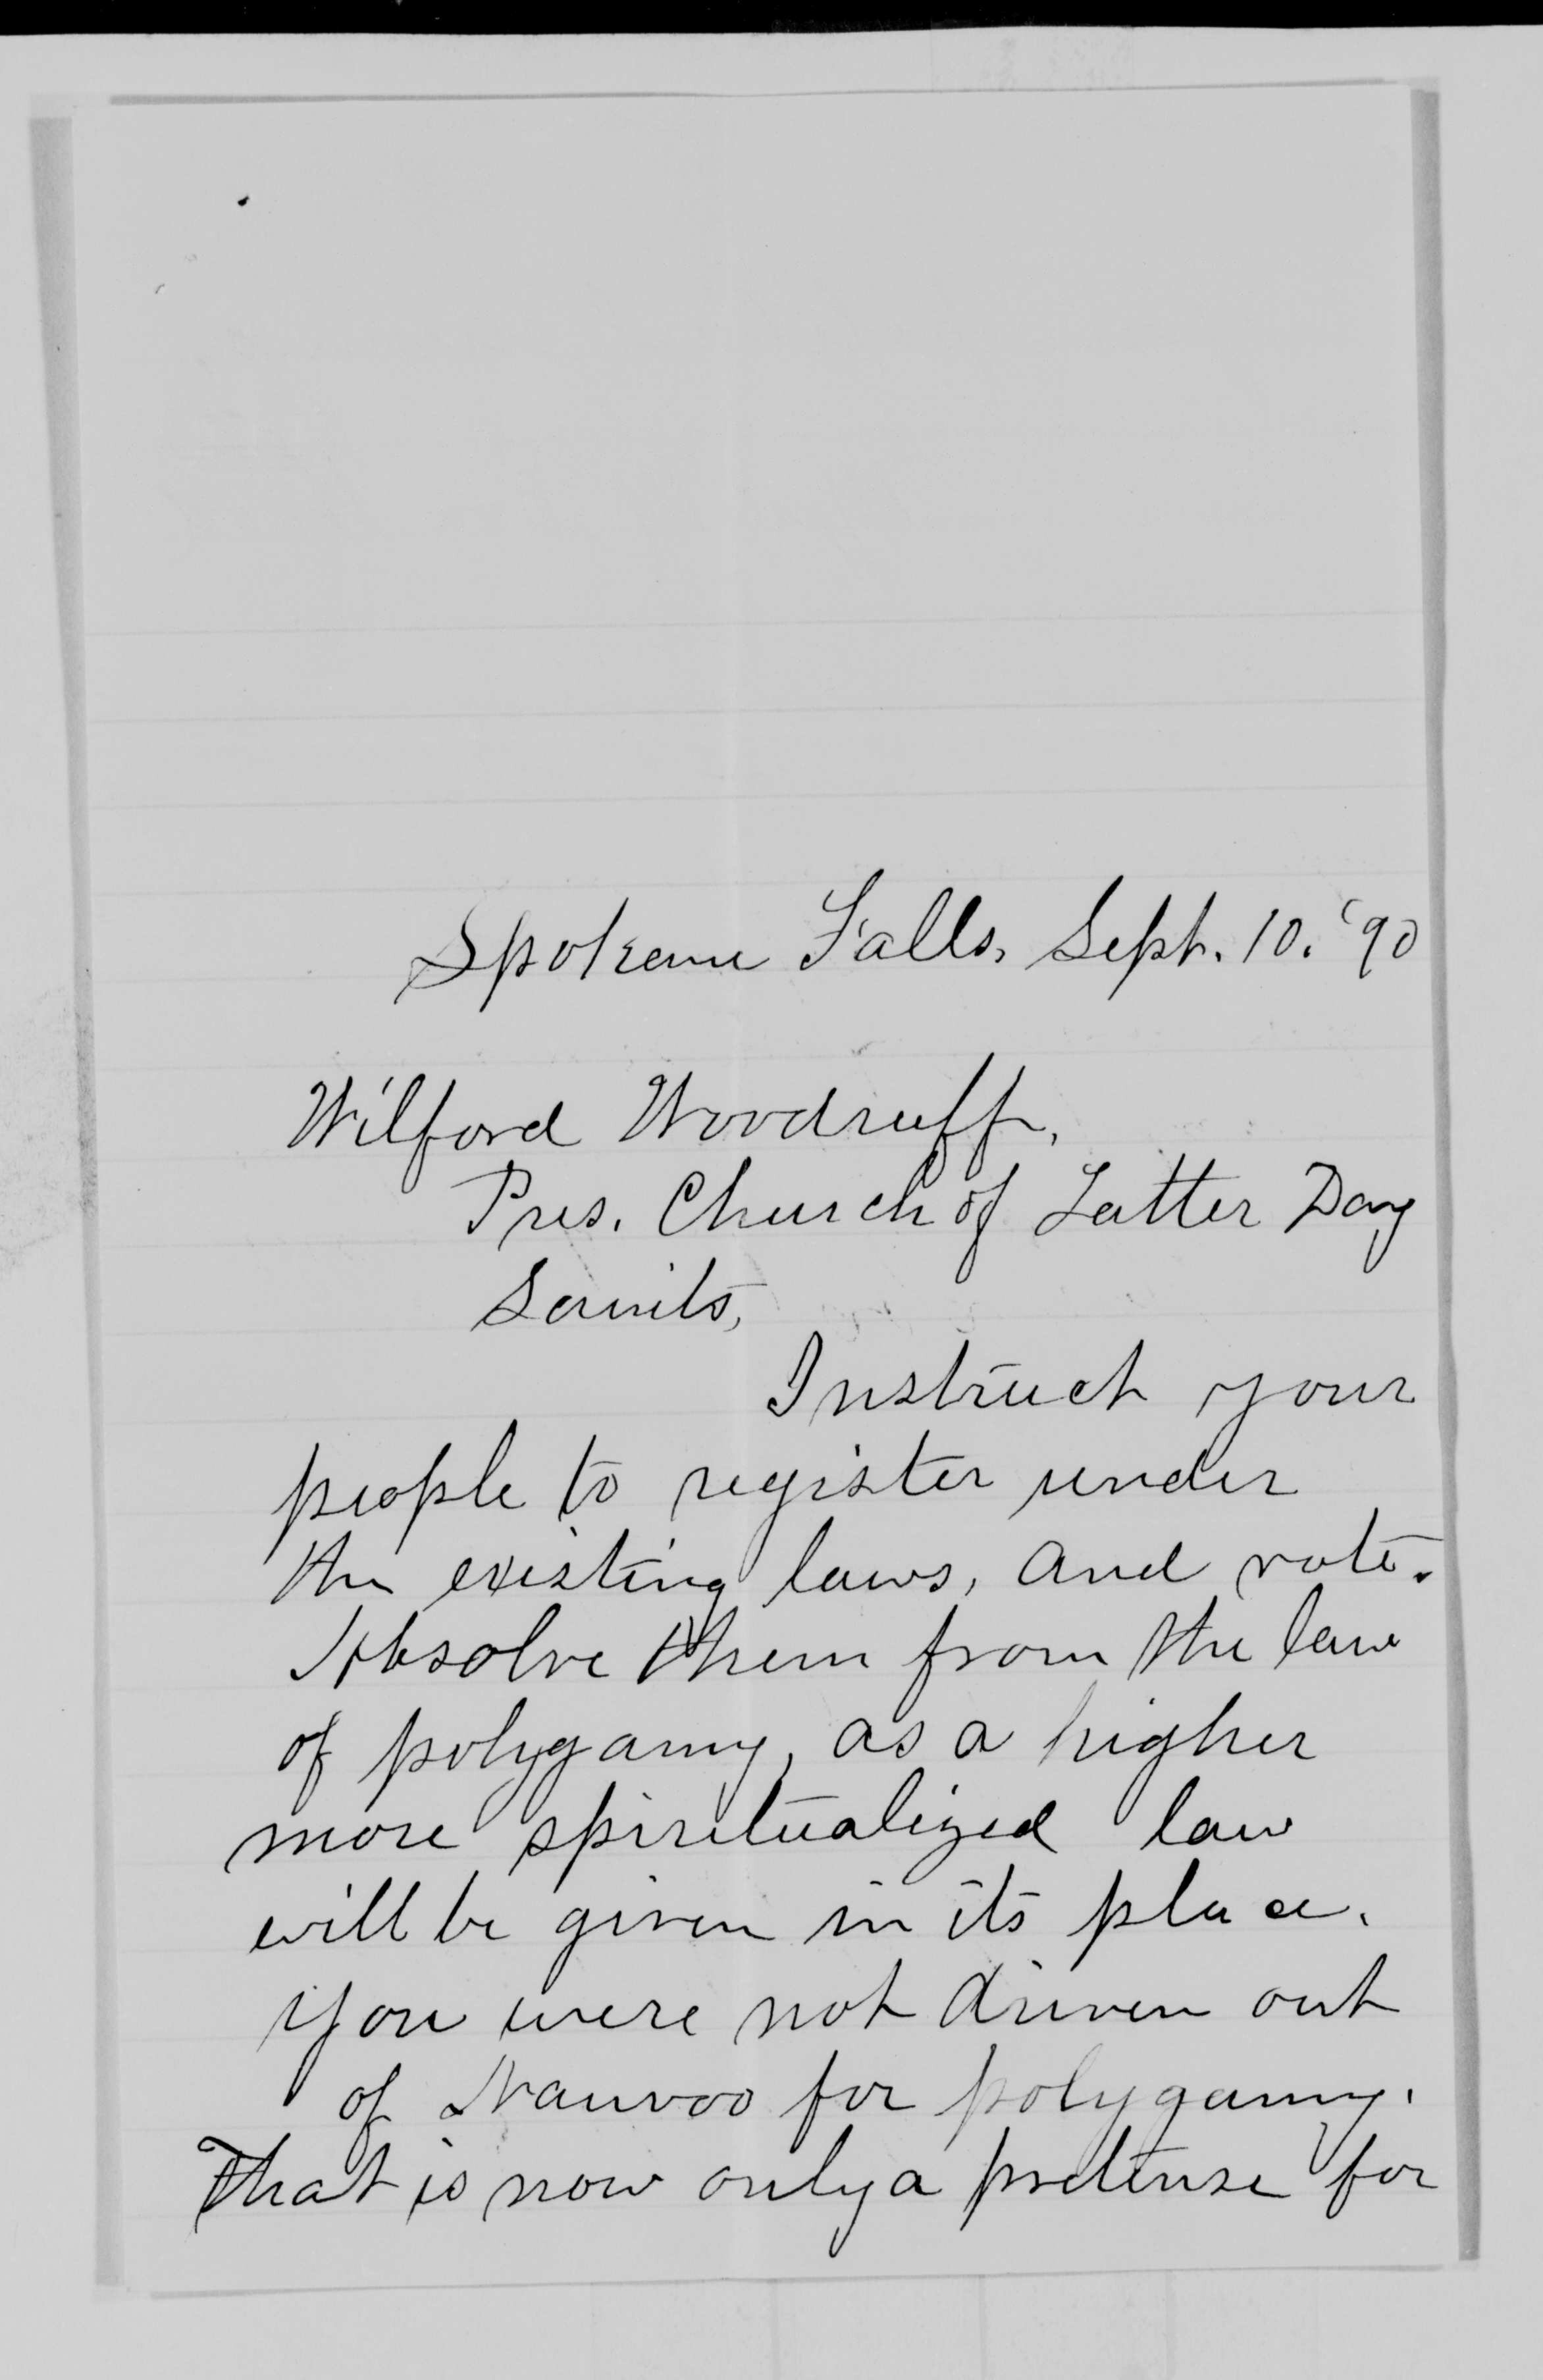 Spokane Falls, Sept. 10. '90
Wilford Woodruff,
Pres. Church of Latter Day
Saints,
Instruct your
people to register under
the existing laws, and vote.
Absolve them from the law
of polygamy, as a higher
more spiritualized law
will be given in its place.
You were not driven out
of Nauvoo for polygamy.
That is now only a pretense for